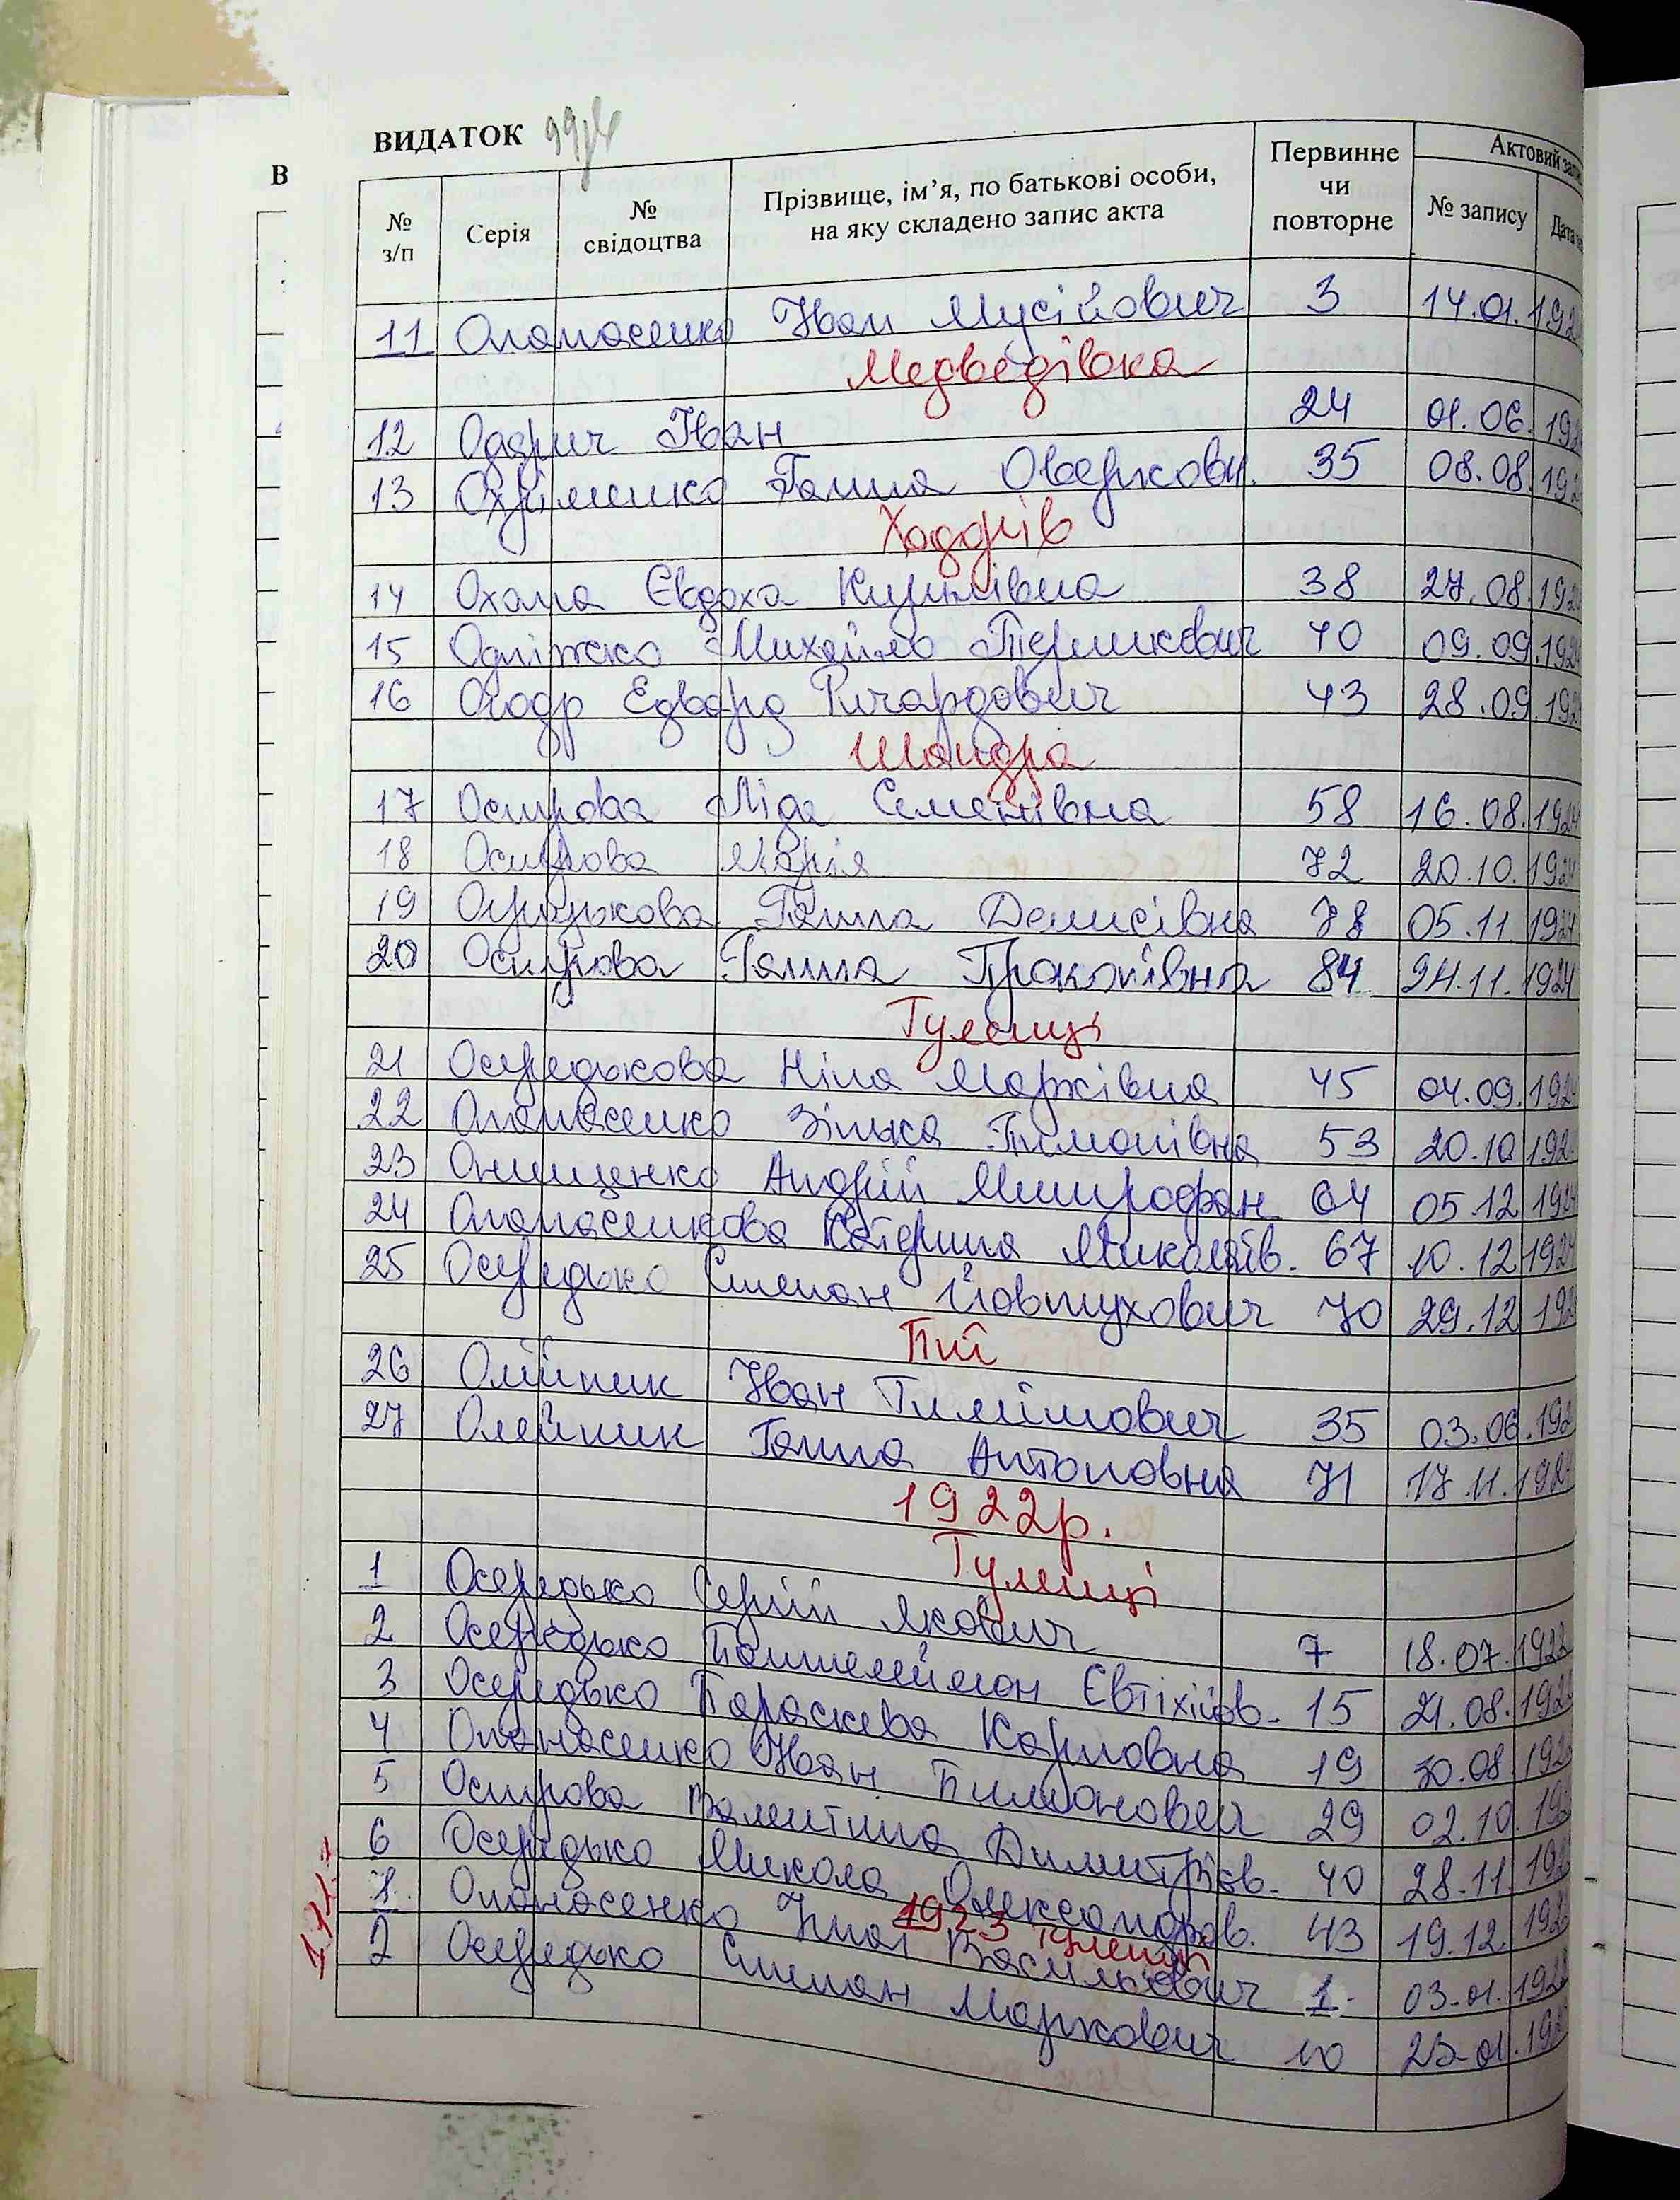 ВИДАТОК
В
№ з/п Серія № свідоцтва Прізвище, ім’я, по батькові особи, на яку складено запис акта Первинне чи повторне Актовий № запису Дата
11 Опанасенко Іван Мусійович 3 14.01.192
Медведівка
12 Одарич Іван 24 01.06.192
13 Охріменко Ганна Оверковн. 35 08.08.192
Ходорів
14 Охота Євдоха Кирилівна 38 27.08.192
15 Одліжско Михайло 40 09.09.1924
16 Едвард Ричардович 43 28.09.192
Шандра
17 Острова Ліда Семенівна 58 16.08.1924
18 Острова Марія 72 20.10.1924
19 Ганна Денисівна 78 05.11.1924
20 Острова Ганна Прокопівна 84 24.11.1924
Тулинці
21 Осередькова Ніла Марківна 45 04.09.192
22 Опанасенко Зінька Тимошівна 53 20.10.192
23 Онищенко Андрій Митрофан. 64 05.12.1924
24 Опанасенкова Катерина Миколаїв. 67 10.12.1924
25 Осередько Степан Йовтухович 70 29.12.192
Пії
26 Олійник Іван 35 03.06.192
27 Олейник Ганна Антоновна 71 17.11.1924
1922р.
Тулинці
1 Осередько Сергій Якович 7 18.07.1922
2 Осередько Пантелеймон Євтіхійов. 15 21.08.1922
3 Осередько Параскева Карповна 19 30.08.192
4 Опанасенко Іван 29 02.10.192
5 Острова Валентина Димитрієв. 40 28.11.192
6 Осередько Микола Олександров. 43 19.12.192
1923 Тулинці
1. Опанасенко Василькович 1 03.01.192
2 Осередько Степан Маркович 10 23.01.192